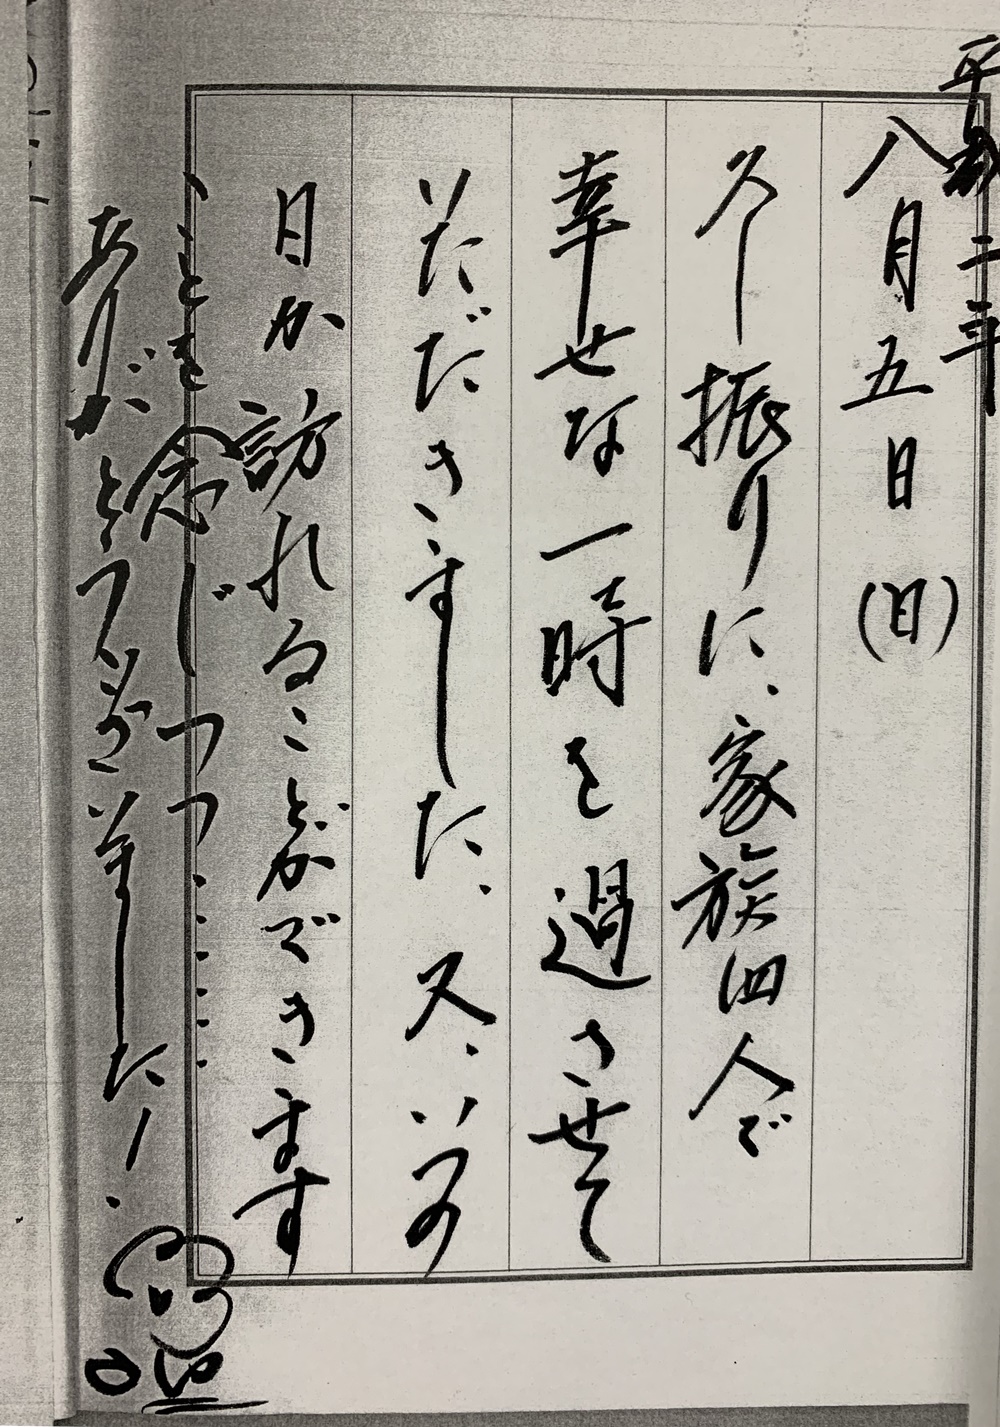 平成二年
八月五日(日)
久し振りに、家族四人で
幸せな一時を過させて
いただきました、又、いつの
日か訪れることができます
ことを念じつつ……
ありがとうございました!